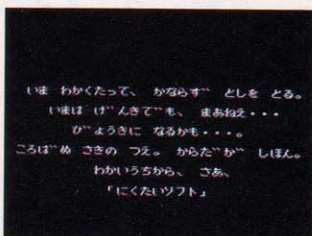 いま わかくたって、 かならず としを とる。
いまは げんきでも、 まあねえ・・・
びょうきに なるかも・・・。
ころばぬ さきの つえ。 からだが しほん。
わかいうちから、 さあ、
「にくたいソフト」